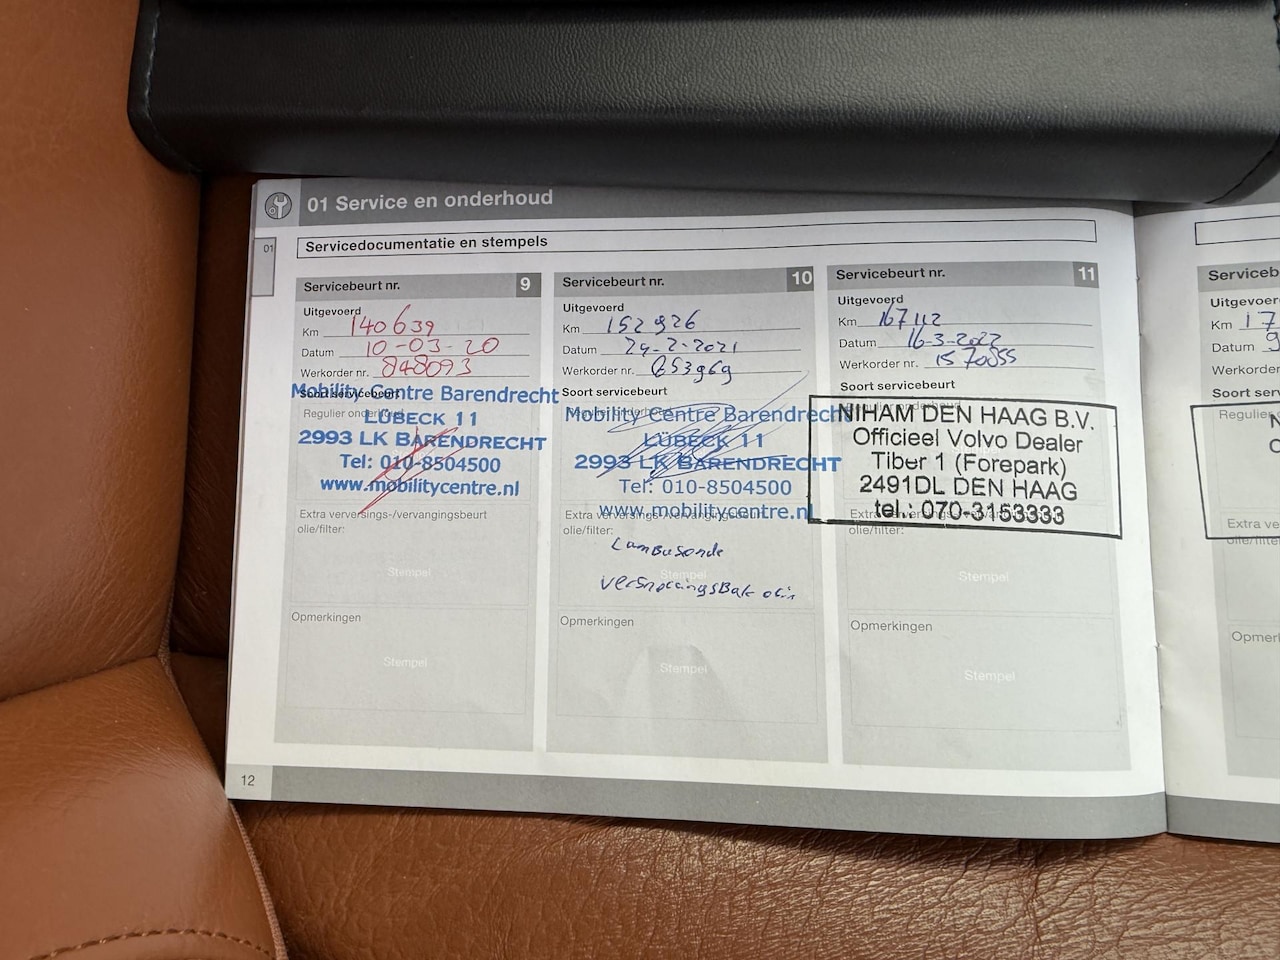 01 Service en onderhoud
01
Servicedocumentatie en stempels
Servicebeurt nr. 9
Uitgevoerd
Km 140639
Datum 10-03-20
Werkorder nr. 848093
Soort servicebeurt
Regulier onderhoud
Mobility Centre Barendrecht
LÜBECK 11
2993 LK BARENDRECHT
Tel: 010-8504500
www.mobilitycentre.nl
Extra verversings-/vervangingsbeurt
olie/filter:
Stempel
Opmerkingen
Stempel
Servicebeurt nr. 10
Uitgevoerd
Km 152926
Datum 24-2-2021
Werkorder nr. 853969
Soort servicebeurt
Regulier onderhoud
Mobility Centre Barendrecht
LÜBECK 11
2993 LK BARENDRECHT
Tel: 010-8504500
www.mobilitycentre.nl
Extra verversings-/vervangingsbeurt
olie/filter:
Stempel
Opmerkingen
Stempel
Servicebeurt nr. 11
Uitgevoerd
Km 167112
Datum 16-3-2022
Werkorder nr. 1570855
Soort servicebeurt
Regulier onderhoud
NIHAM DEN HAAG B.V.
Officieel Volvo Dealer
Tiber 1 (Forepark)
2491DL DEN HAAG
tel.: 070-3153333
olie/filter:
Stempel
Opmerkingen
Stempel
12
Serviceb
Uitgevoer
Km 17
Datum 9
Werkorder
Soort serv
Regulier
Extra ve
olie/filte
Opmer